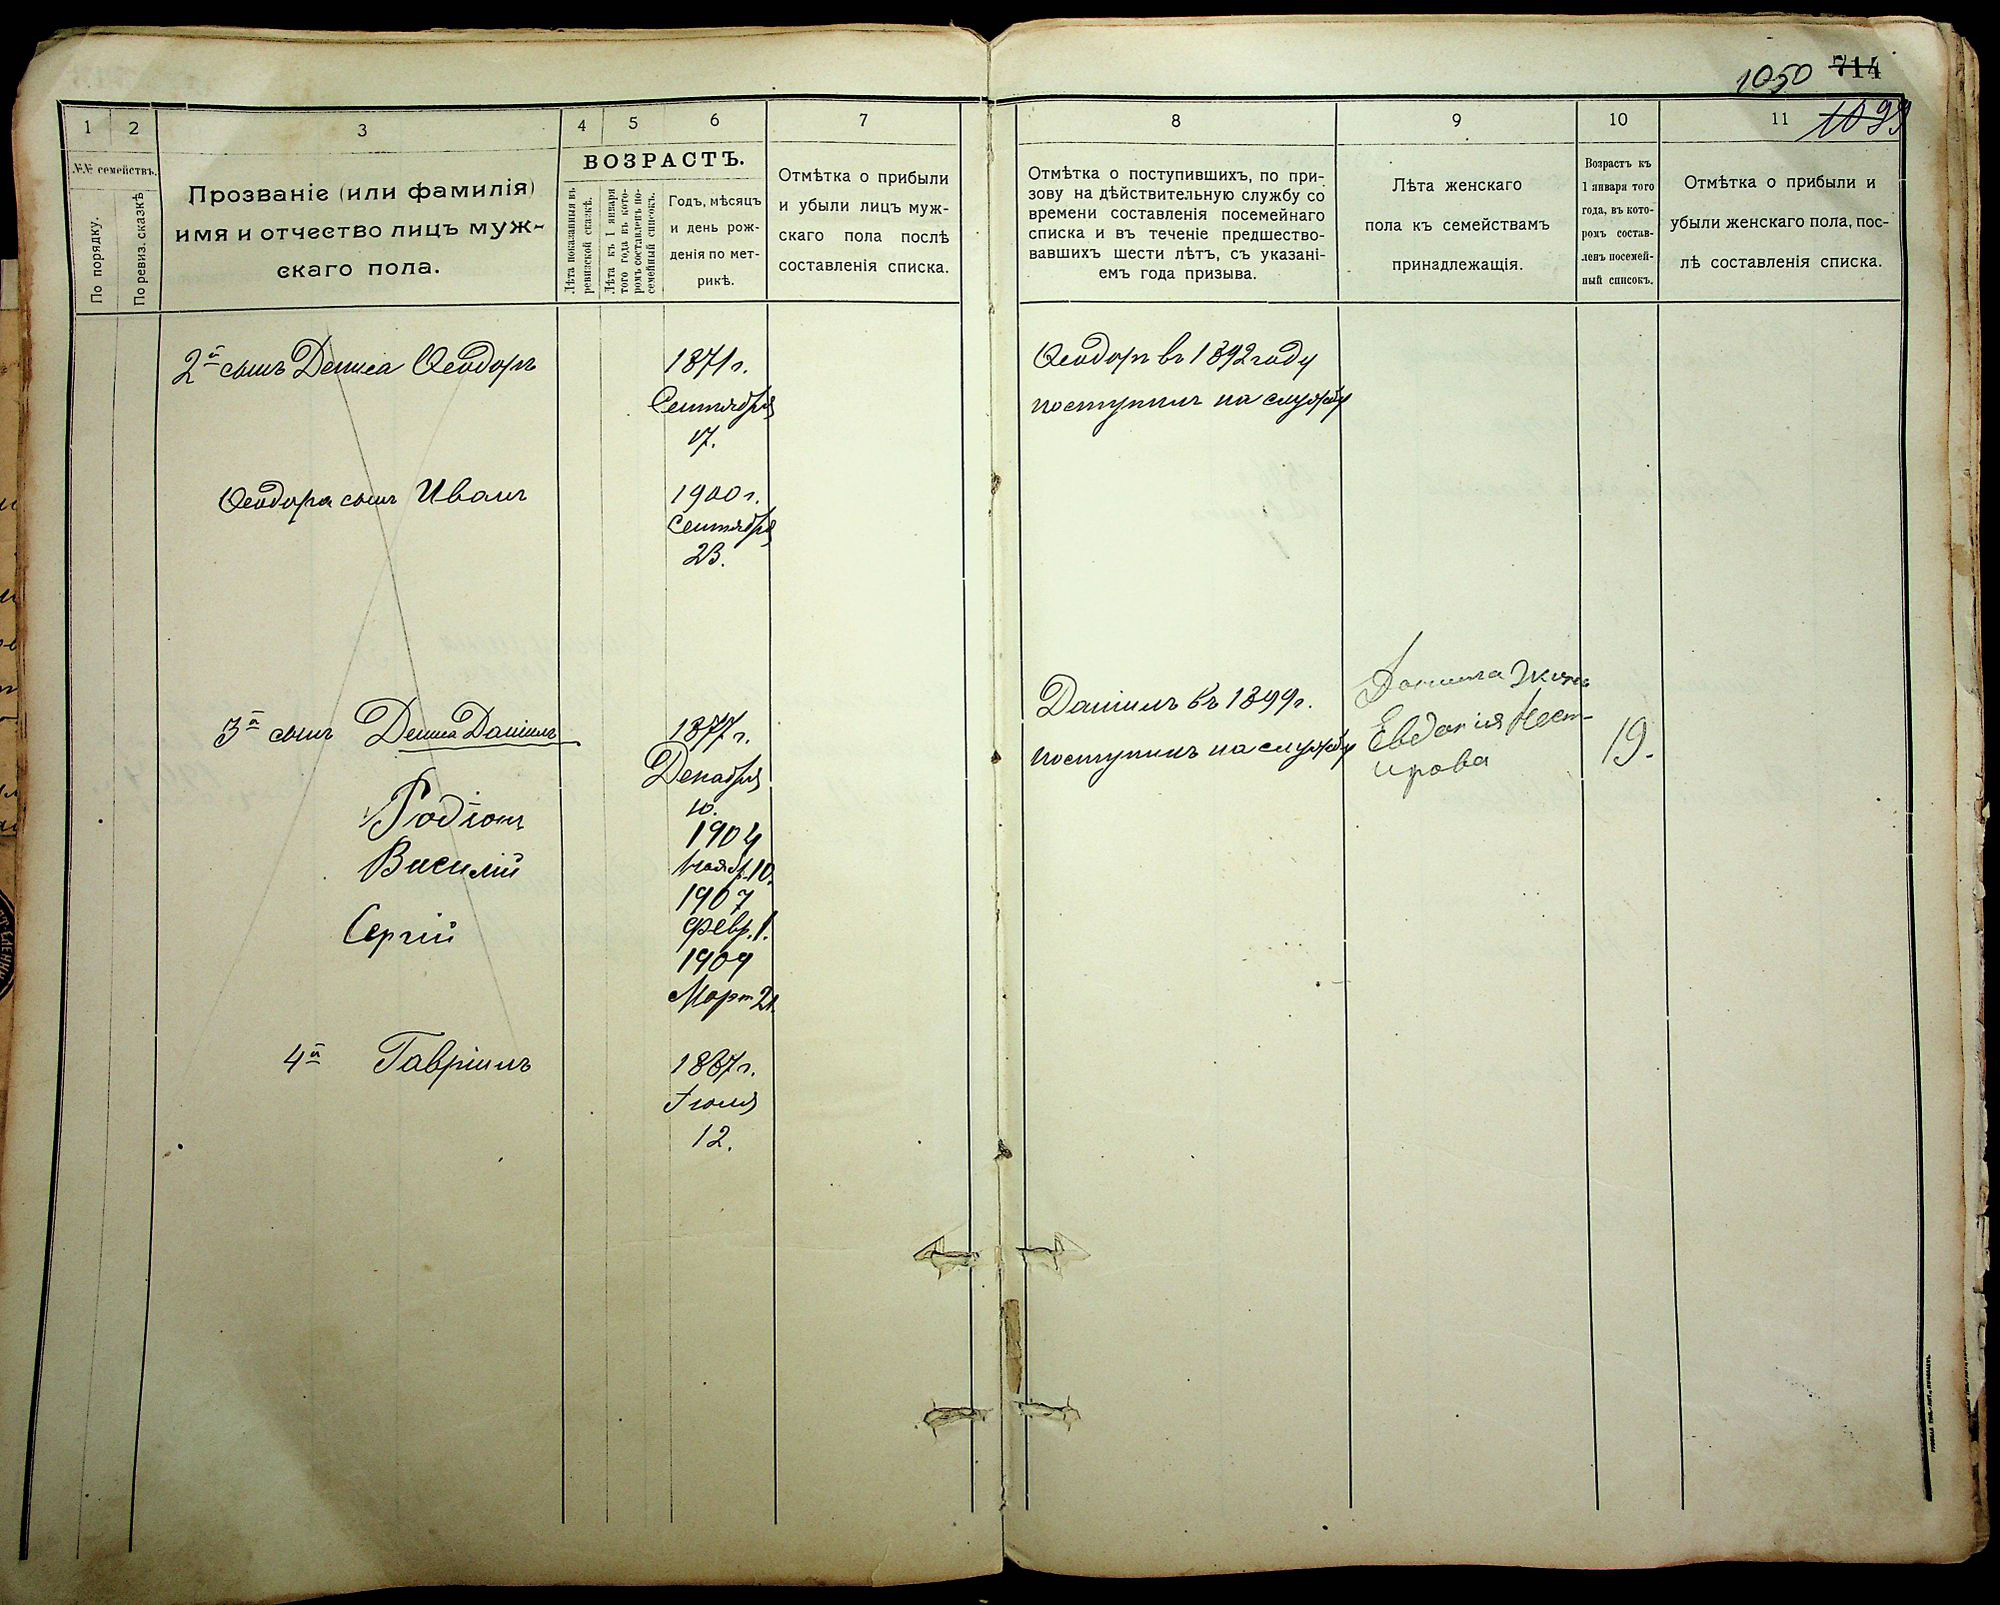 1050 714
1099
1 2 3 4 5 6 7
№№ семействъ.
По порядку.
По ревиз. сказкѣ
Прозваніе (или фамилія)
имя и отчество лицъ муж-
скаго пола.
ВОЗРАСТЪ.
Лѣта показанныя въ
ревизской сказкѣ.
Лѣта къ 1 января
того года въ кото-
ромъ составленъ по-
семейный списокъ.
Годъ, мѣсяцъ
и день рож-
денія по мет-
рикѣ.
Отмѣтка о прибыли
и убыли лицъ муж-
скаго пола послѣ
составленія списка.
2й сынъ Дениса Ѳеодоръ
1871 г.
Сентября
17.
Ѳеодора сынъ Иванъ
1900 г.
Сентября
23.
3й сынъ Дениса Даніилъ
1877 г.
Декабря
10.
Родіон
1904
Нояб. 10.
Василій
1907
Февр. 1.
Сергій
1909
Март 21.
4й Гавріилъ
1887 г.
Іюля
12.
8 9 10 11
Отмѣтка о поступившихъ, по при-
зову на дѣйствительную службу со
времени составленія посемейнаго
списка и въ теченіе предшество-
вавшихъ шести лѣтъ, съ указані-
емъ года призыва.
Лѣта женскаго
пола къ семействамъ
принадлежащія.
Возрастъ къ
1 января того
года, въ кото-
ромъ состав-
ленъ посемей-
ный списокъ.
Отмѣтка о прибыли и
убыли женскаго пола, пос-
лѣ составленія списка.
Ѳеодоръ въ 1892 году
поступилъ на службу
Даніилъ въ 1899 г.
поступилъ на службу
Данила жена
Евдокія Нест-
ирова
19.